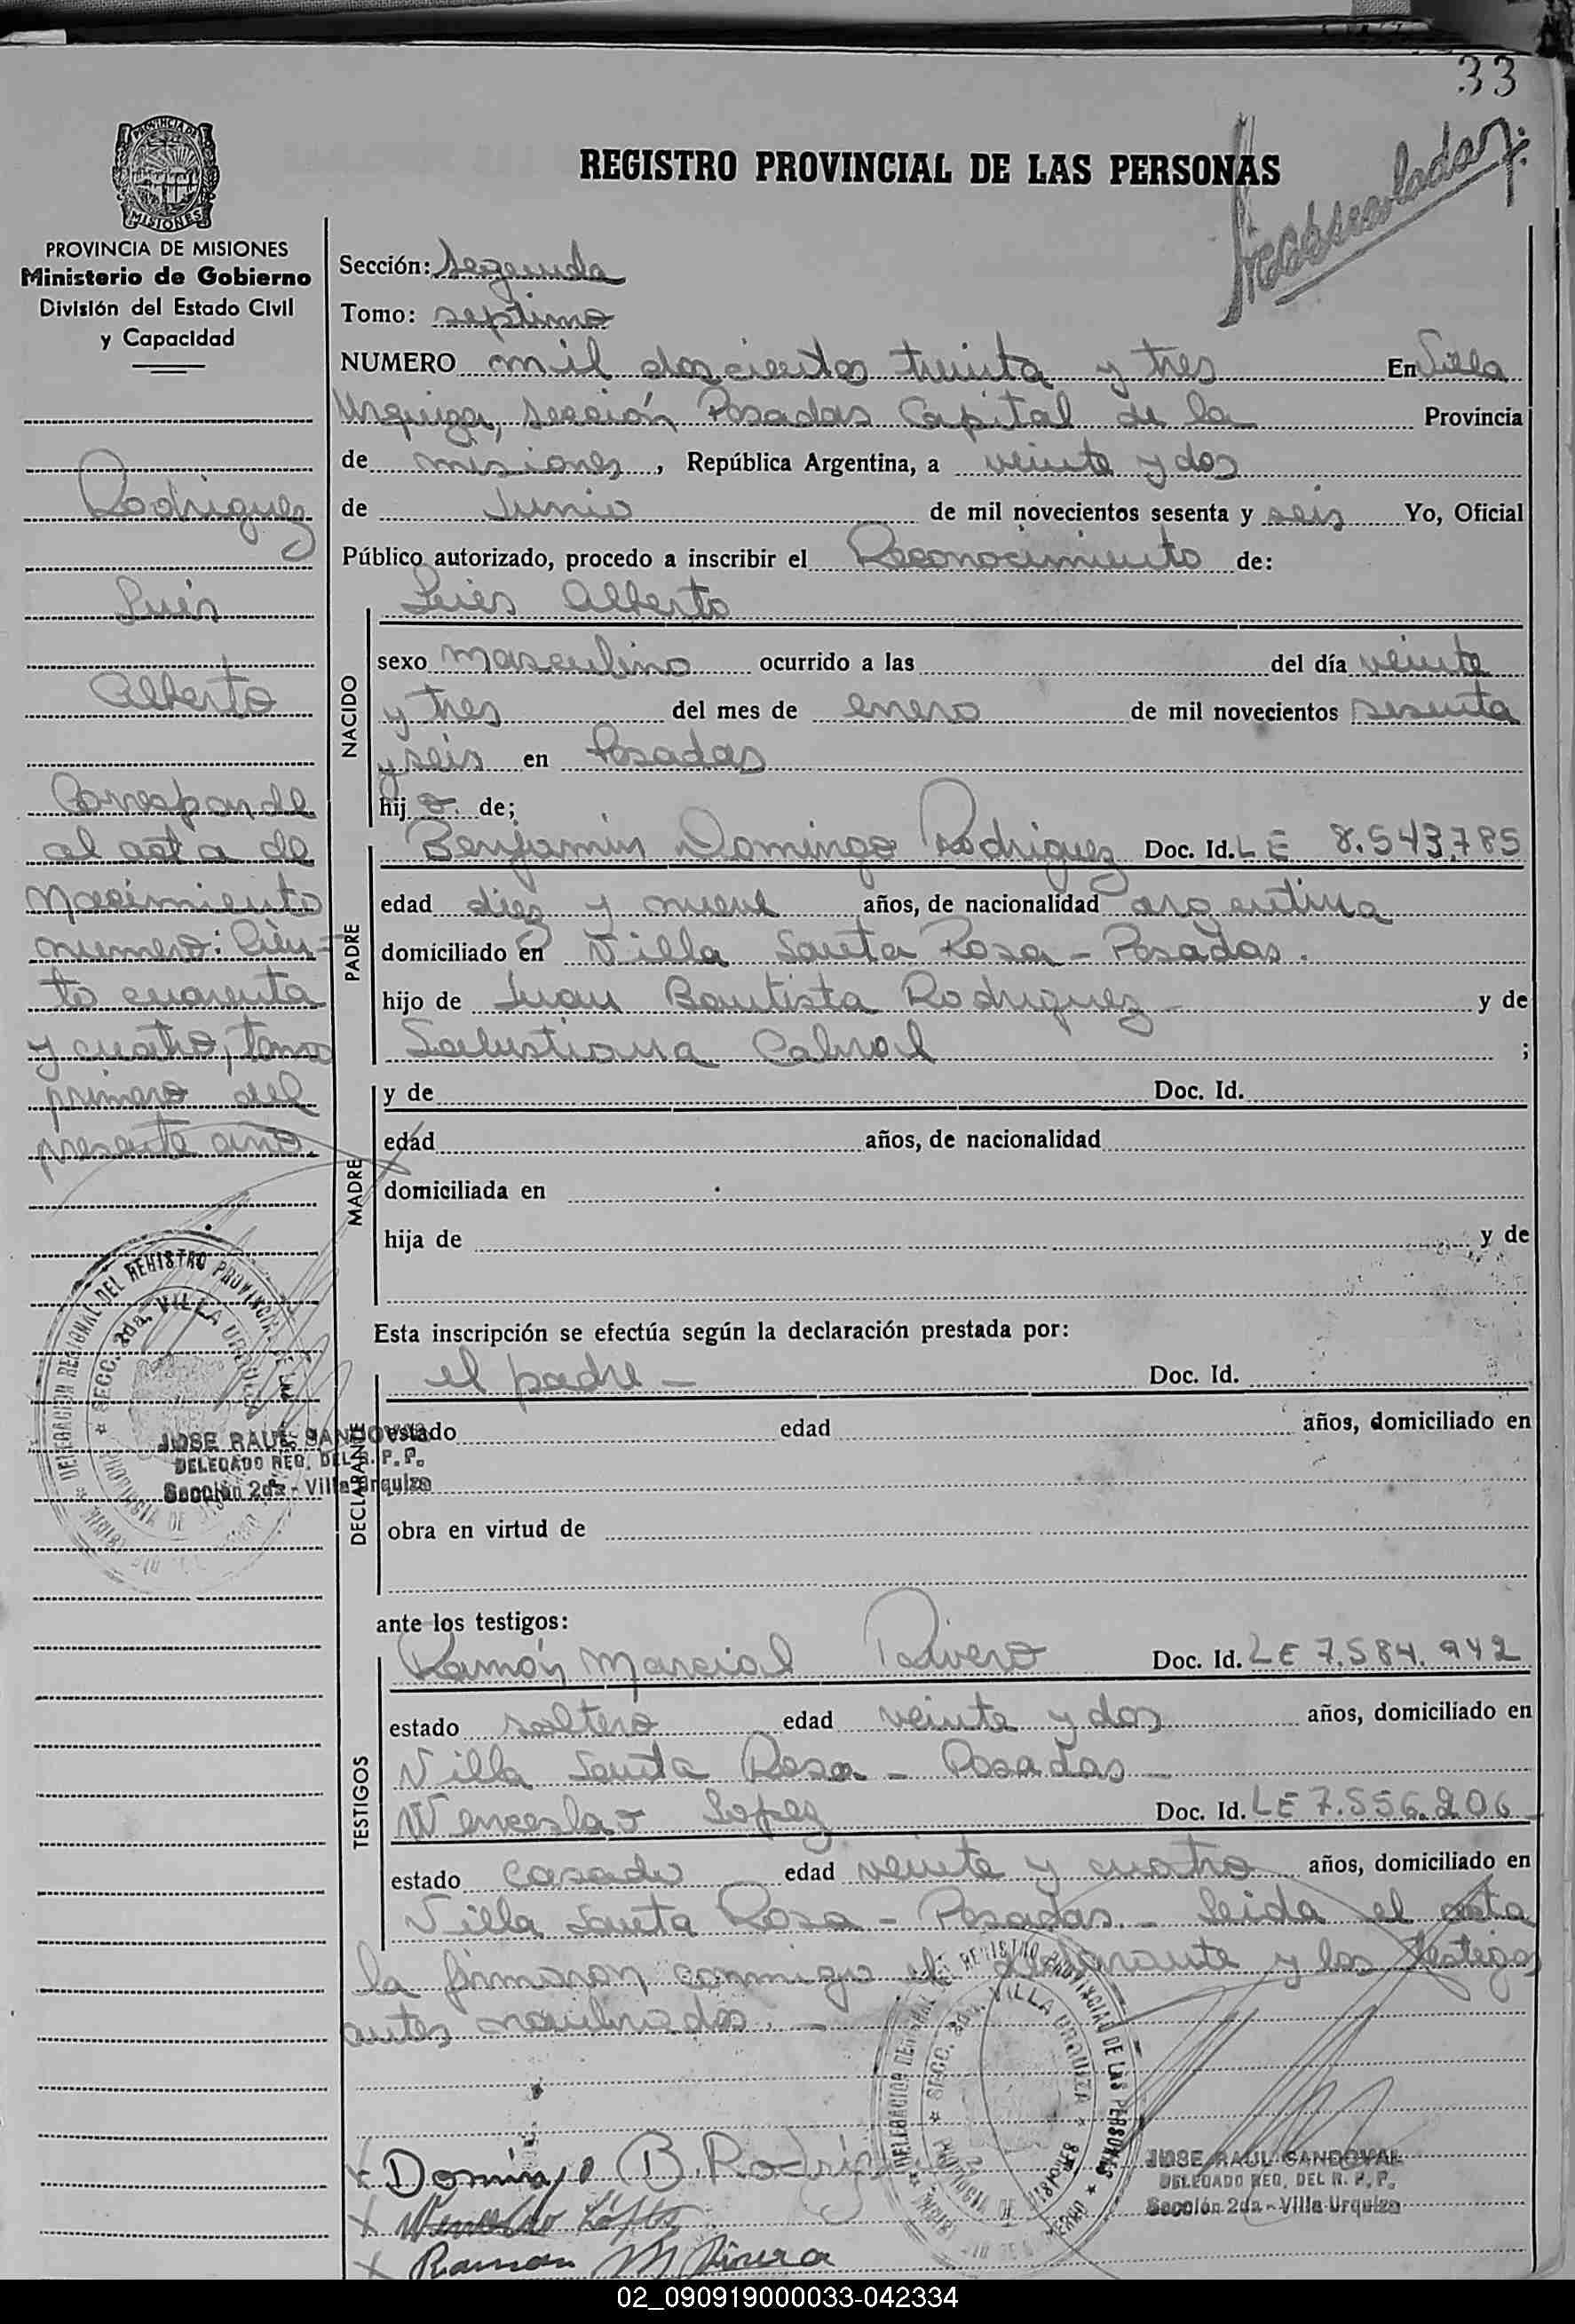 33
REGISTRO PROVINCIAL DE LAS PERSONAS
PROVINCIA DE
MISIONES
PROVINCIA DE MISIONES
Ministerio de Gobierno
División del Estado Civil
y Capacidad
Rodriguez
Luis
Alberto
Corresponde
al acta de
nacimiento
numero: Cien-
to cuarenta
y cuatro, tomo
primero del
presente año.
DELEGACION REGIONAL DEL REGISTRO PROVINCIAL DE LAS
SECC. 2da. VILLA URQUIZA
PROVINCIA DE
JOSE RAUL SANDOVAL
DELEGADO REG. DEL R. P. P.
Sección 2da - Villa Urquiza
Sección: Segunda
Tomo: septimo
NUMERO mil doscientos treinta y tres En Villa
Urquiza, sección Posadas Capital de la Provincia
de misiones, República Argentina, a veinte y dos
de Junio de mil novecientos sesenta y seis Yo, Oficial
Público autorizado, procedo a inscribir el Reconocimiento de:
NACIDO
Luis Alberto
sexo masculino ocurrido a las del día veinte
y tres del mes de enero de mil novecientos sesenta
y seis en Posadas
hij o de;
PADRE
Benjamin Domingo Rodriguez Doc. Id. LE 8.543.785
edad diez y nueve años, de nacionalidad argentina
domiciliado en Villa Santa Rosa - Posadas.
hijo de Juan Bautista Rodriguez y de
Salustiana Cabral ;
MADRE
y de Doc. Id.
edad años, de nacionalidad
domiciliada en
hija de y de
Esta inscripción se efectúa según la declaración prestada por:
DECLARANTE
el padre - Doc. Id.
estado edad años, domiciliado en
obra en virtud de
ante los testigos:
TESTIGOS
Ramón Marcial Rivero Doc. Id. LE 7.584.942
estado soltero edad veinte y dos años, domiciliado en
Villa Santa Rosa - Posadas -
Wenceslao Lopez Doc. Id. LE 7.556.206 -
estado casado edad veinte y cuatro años, domiciliado en
Villa Santa Rosa - Posadas. - Leida el acta
la firmaron conmigo el declarante y los testigos
antes nombrados. -
DELEGACION REGIONAL DEL REGISTRO PROVINCIAL DE LAS PERSONAS
SECC. 2da. VILLA URQUIZA
PROVINCIA DE MISIONES
x Domingo B. Rodrig
x Wenceslao López
x Ramon M Rivero
JOSE RAUL SANDOVAL
DELEGADO REG. DEL R. P. P.
Sección 2da - Villa Urquiza
02_090919000033-042334